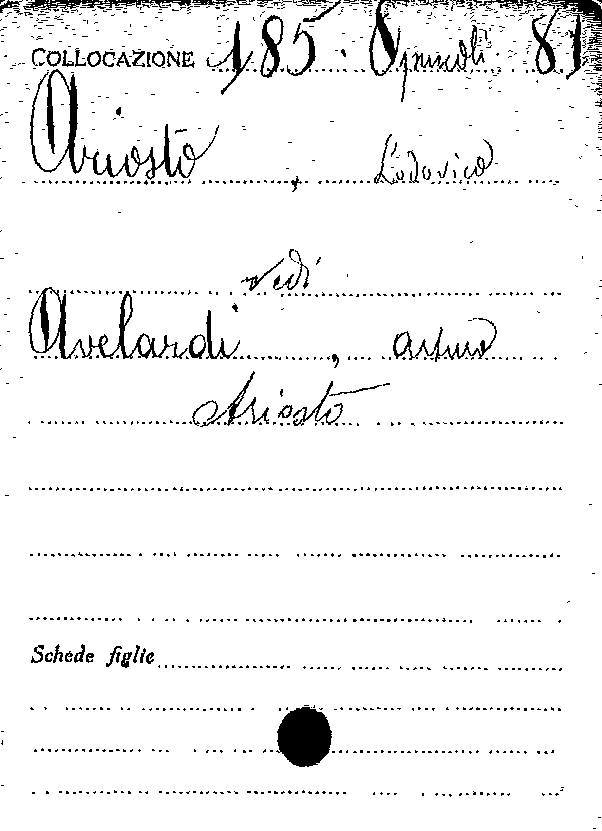 COLLOCAZIONE 185. Opuscoli. 81
Ariosto, Lodovico
vedi
Avelardi, Arturo
Ariosto
Schede figlie